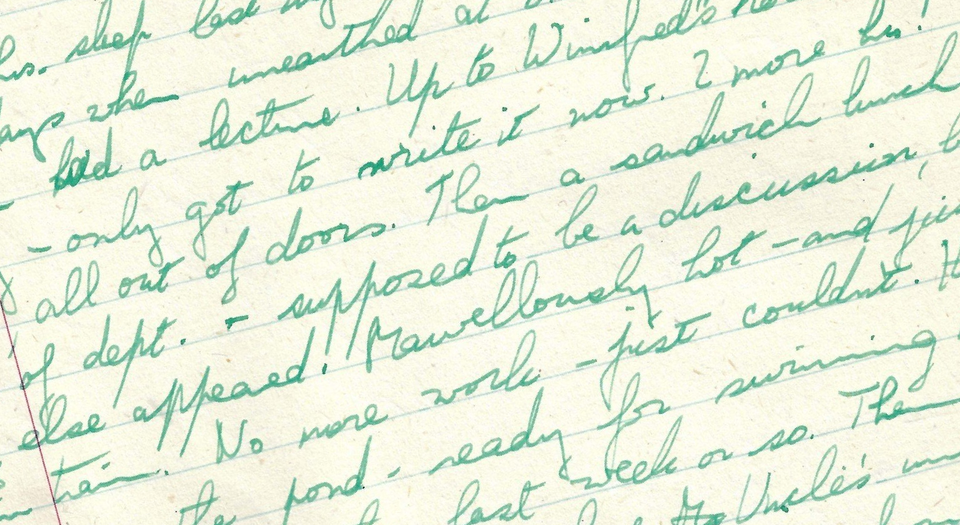 hrs. sleep last
days when unearthed at
- had a lecture. Up to Winifred's
- only got to write it now. 2 more hrs!
all out of doors. Then a sandwich lunch
of dept. - supposed to be a discussion,
else appeared! Marvellously hot - and just
train. No more work - just couldn't.
the pond - ready for swimming
last week or so. Then
Uncle's